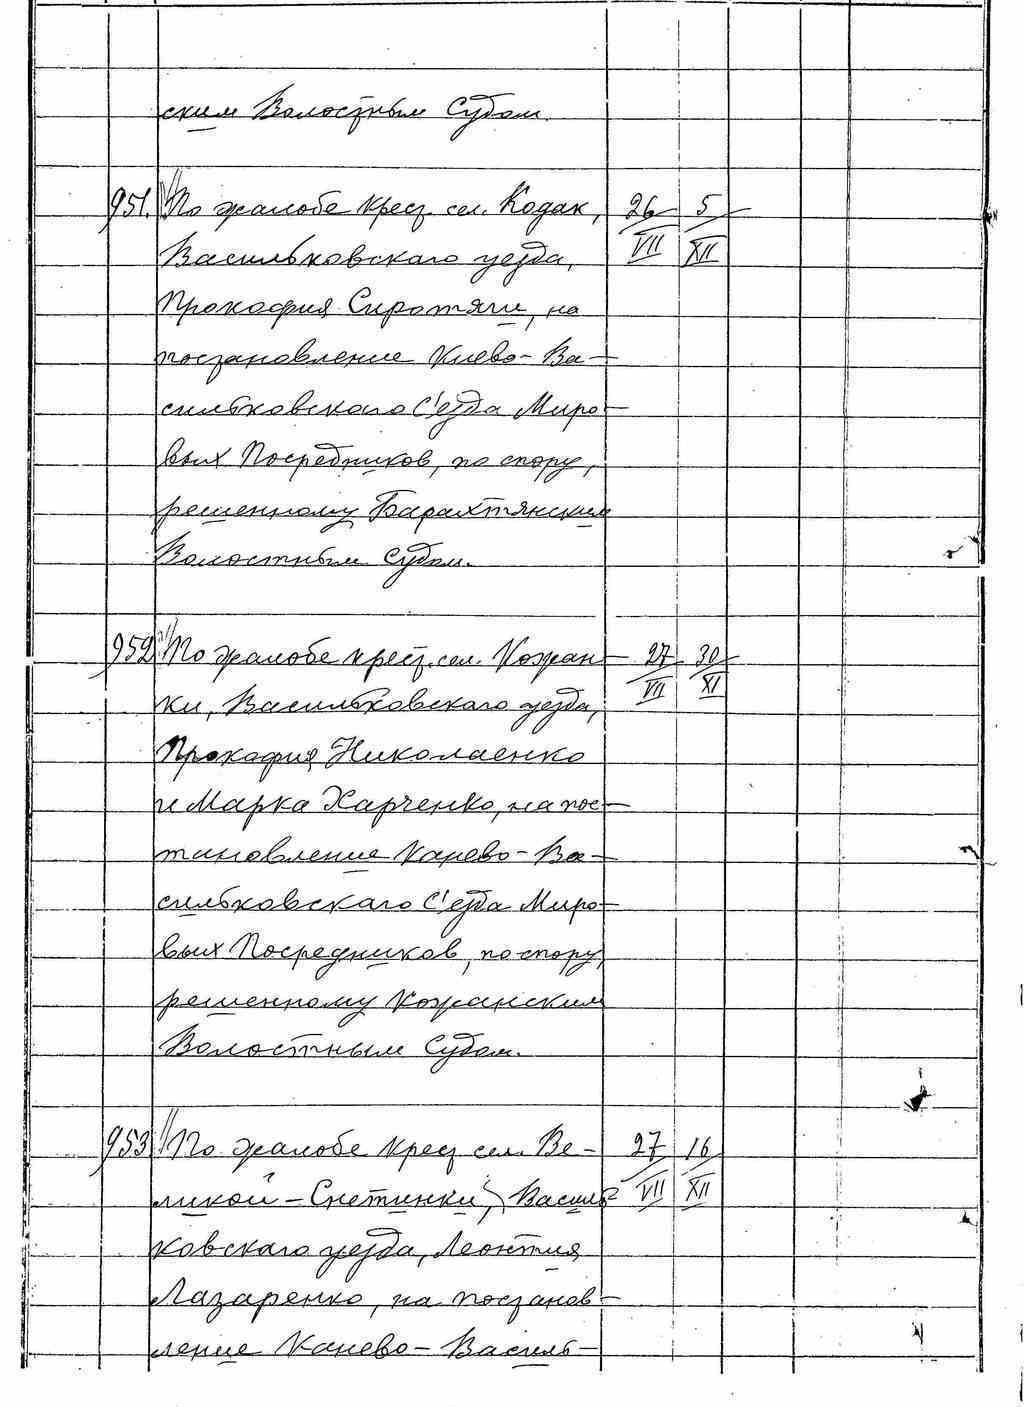 ским Волостным Судом.
951. По жалобе крест. сел. Кодак, 26/VII 5/XII
Васильковскаго уезда,
Прокофия Сиротяги, на
постановление Киево-Ва-
сильковскаго С'езда Миро-
вых Посредников, по спору,
решенному Барахтянским
Волостным Судом.
952 По жалобе крест. сел. Кожан- 27/VII 30/XI
ки, Васильковскаго уезда,
Прокофия Николаенко
и Марка Харченко, на пос-
тановление Канево-Ва-
сильковскаго С'езда Миро-
вых Посредников, по спору,
решенному Кожанским
Волостным Судом.
953 По жалобе крест. сел. Ве- 27/VII 16/XII
ликой-Снетинки, Василь-
ковскаго уезда, Леонтия
Лазаренко, на постанов-
ление Канево-Василь-